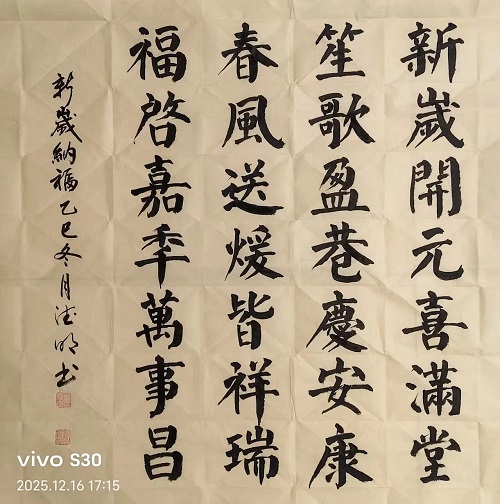 新嵗開元喜滿堂
笙歌盈巷慶安康
春風送煖皆祥瑞
福啓嘉季萬事昌
新嵗納福乙巳冬月德明書
vivo S30
2025.12.16 17:15